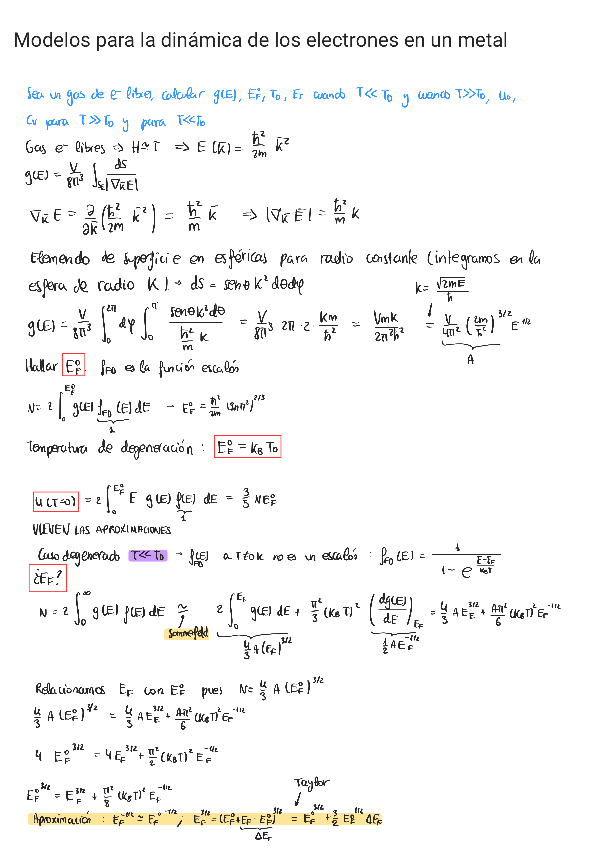 Modelos para la dinámica de los electrones en un metal
Sea un gas de e⁻ libre, calcular g(E), E_F°, T₀, E_F cuando T<<T₀ y cuando T>>T₀, u₀,
Cv para T>>T₀ y para T<<T₀
Gas e⁻ libres => H≃T => E(k̄) = ħ²/2m k̄²
g(E) = V/8π³ ∫ ds/|∇k̄E|
∇k̄ E = ∂/∂k̄ (ħ²/2m k̄²) = ħ²/m k̄ => |∇k̄ E| = ħ²/m k
Elemendo de superficie en esféricas para radio constante (integramos en la
esfera de radio K) → ds = senθ k² dθdφ
k = √2mE/ħ
g(E) = V/8π³ ∫₀^2π dφ ∫₀^π senθk²dθ / ħ²/m k = V/8π³ 2π·2· km/ħ² = Vmk/2π²ħ² = V/4π² (2m/ħ²)^3/2 E^1/2
A
Hallar E_F°. f_FD es la función escalón
N = 2 ∫₀^E_F° g(E) f_FD(E) dE → E_F° = ħ²/2m (3nπ²)^2/3
1
Temperatura de degeneración : E_F° = k_B T₀
U(T=0) = 2 ∫₀^E_F° E g(E) f(E) dE = 3/5 N E_F°
1
VIENEN LAS APROXIMACIONES
Caso degenerado T<<T₀ → f_FD(E) a T≠0K no es un escalón : f_FD(E) = 1 / 1 - e^(E-E_F/k_BT)
¿E_F?
N = 2 ∫₀^∞ g(E) f(E) dE ≃ 2 ∫₀^E_F g(E) dE + π²/3 (k_BT)² (dg(E)/dE)_E_F = 4/3 A E_F^3/2 + Aπ²/6 (k_BT)² E_F^-1/2
Sommerfeld
4/3 A(E_F)^3/2
1/2 A E_F^-1/2
Relacionamos E_F con E_F° pues N = 4/3 A (E_F°)^3/2
4/3 A (E_F°)^3/2 = 4/3 A E_F^3/2 + Aπ²/6 (k_BT)² E_F^-1/2
4 E_F°^3/2 = 4 E_F^3/2 + π²/2 (k_BT)² E_F^-1/2
E_F°^3/2 = E_F^3/2 + π²/8 (k_BT)² E_F^-1/2
Taylor
Aproximación : E_F^-1/2 ≃ E_F°^-1/2 ; E_F^3/2 = (E_F°+E_F-E_F°)^3/2 = E_F°^3/2 + 3/2 E_F°^1/2 ΔE_F
ΔE_F